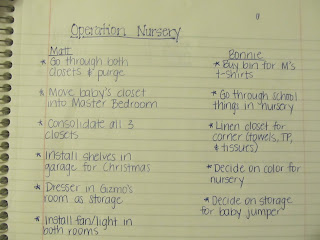 Operation Nursery
Matt
* Go through both
closets & purge
* Move baby's closet
into Master Bedroom
* Consolidate all 3
closets
* Install shelves in
garage for Christmas
* Dresser in Gizmo's
room as storage
* Install fan/light in
both rooms
Bonnie
* Buy bin for M's
t-shirts
* Go through school
things in nursery
* Linen closet for
corner (towels, TP,
& tissues)
* Decide on color for
nursery
* Decide on storage
for baby jumper